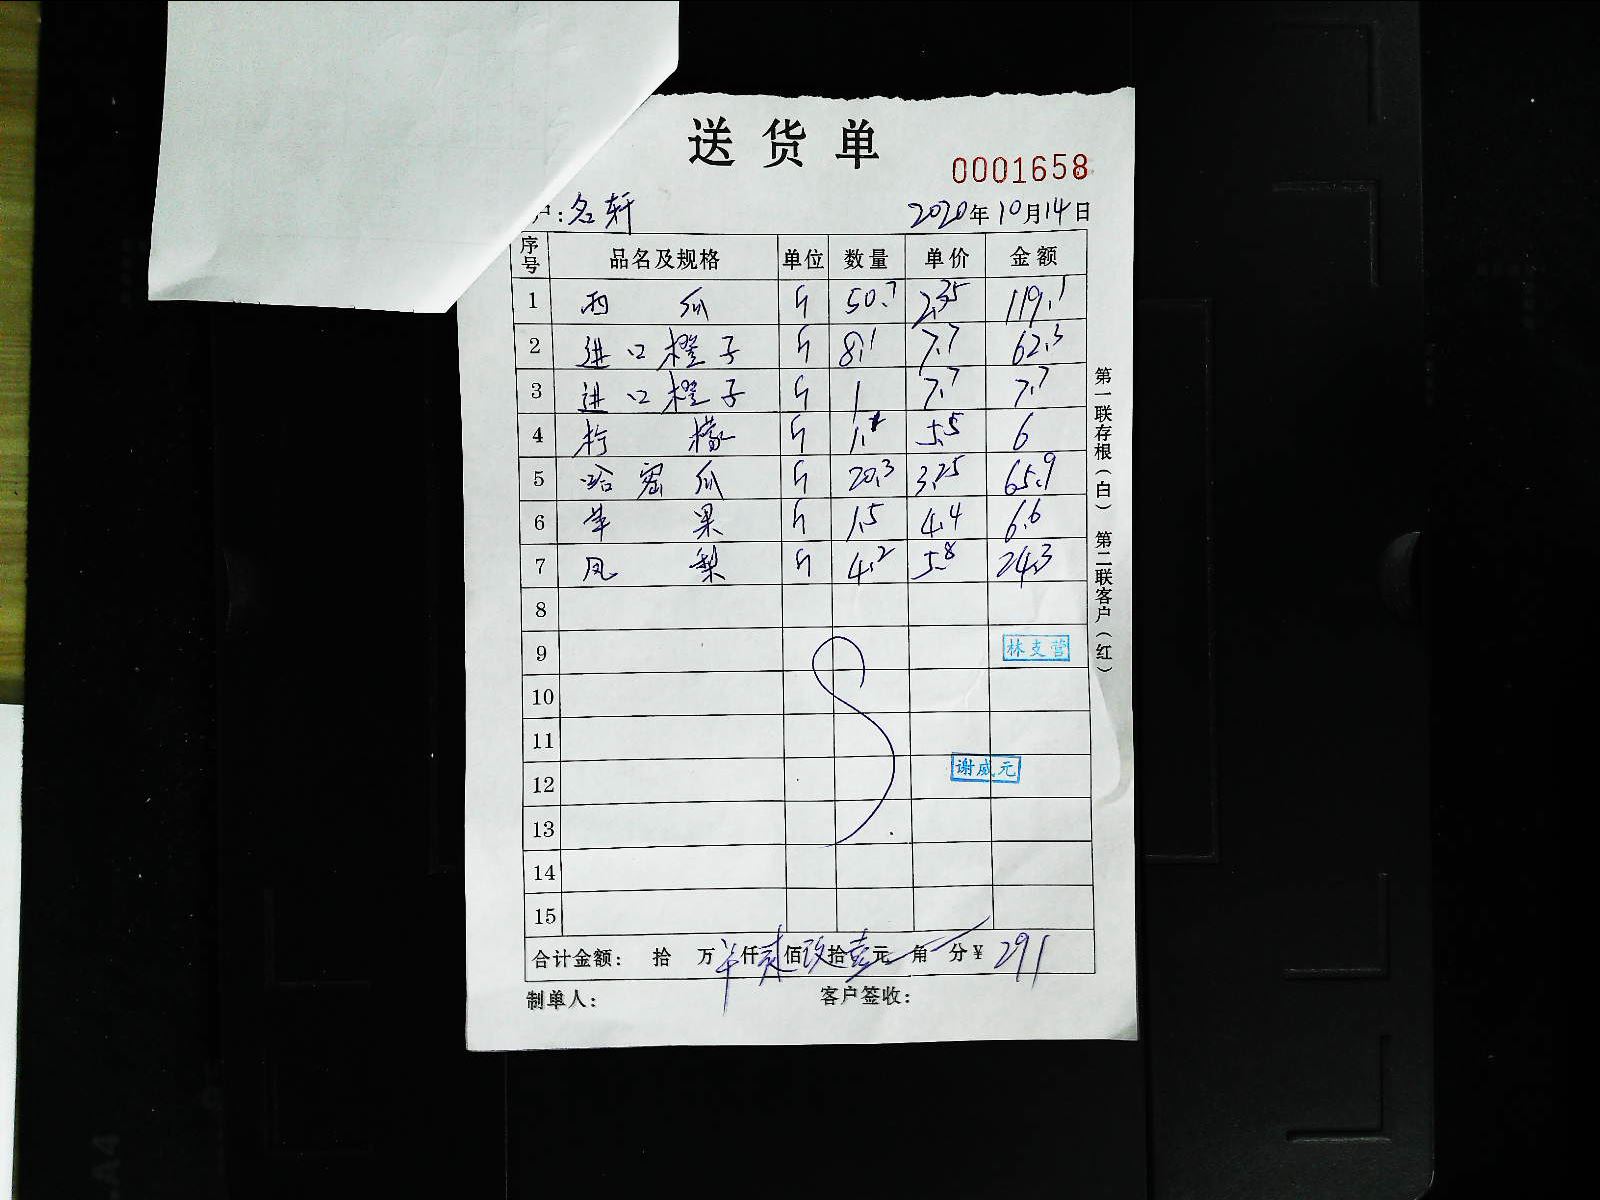 送货单
0001658
户：名轩 2020年10月14日
序号 品名及规格 单位 数量 单价 金额
1 西瓜 斤 50.7 2.35 119.1
2 进口橙子 斤 8.1 7.7 62.3
3 进口橙子 斤 1 7.7 7.7
4 柠檬 斤 1.1 5.5 6
5 哈密瓜 斤 20.3 3.25 65.9
6 苹果 斤 1.5 4.4 6.6
7 凤梨 斤 4.2 5.8 24.3
8
9 林支营
10
11
12 谢威元
13
14
15
合计金额： 拾 万 仟贰佰玖拾壹元 角 分￥ 291
制单人： 客户签收：
第一联存根（白） 第二联客户（红）
A4